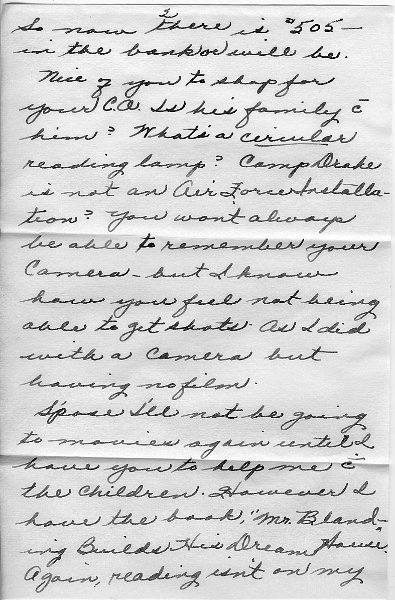 2
So now there is $505—
in the bank or will be.
Nice of you to shop for
your C.O. Is his family c̄
him? What's a circular
reading lamp? Camp Drake
is not an Air Force Installa-
tion? You wont always
be able to remember your
Camera - but I know
how you feel not being
able to get shots. As I did
with a camera but
having no film.
S'pose I'll not be going
to movies again until I
have you to help me c̄
the children. However I
have the book, "Mr. Bland-
ing Builds His Dream House."
Again, reading isn't on my